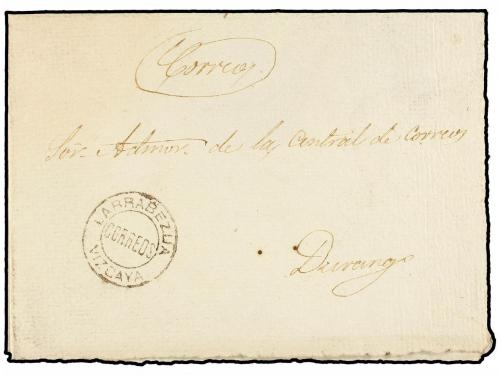 Correos
Sor. Admor. de la Central de Correos
LARRABEZUA
CORREOS
VIZCAYA
Durango